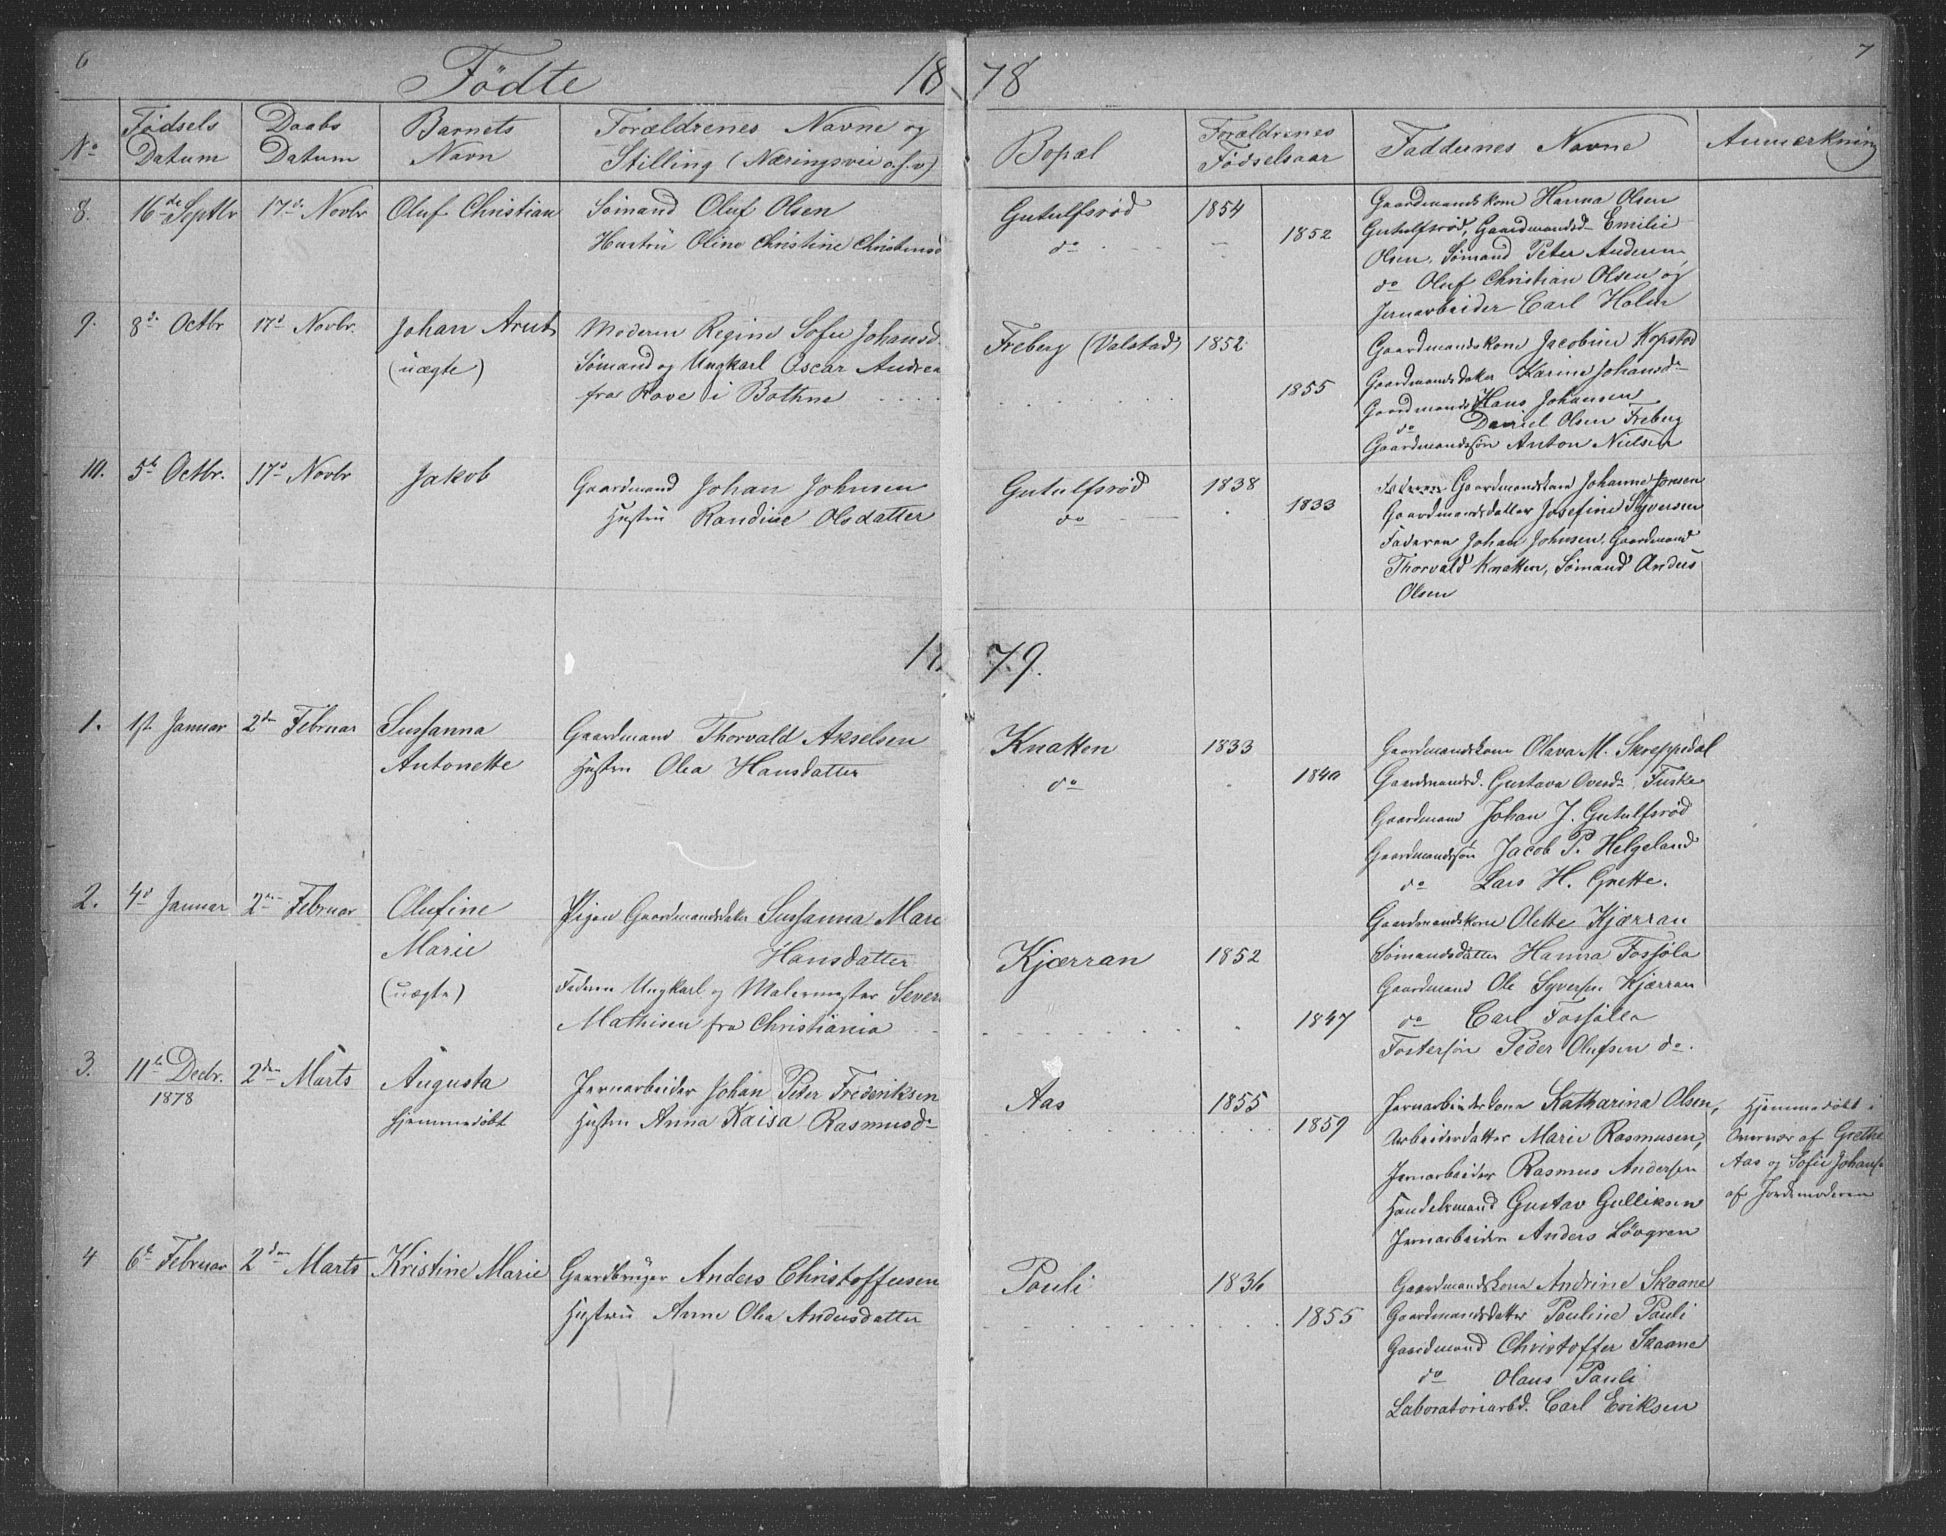 6
Fødte 18 78
7
No
Fødsels Datum
Daabs Datum
Barnets Navn
Forældrenes Navne og Stilling (Næringsvei o.s.v)
Bopæl
Forældrenes Fødselsaar
Faddernes Navne
Anmærkning
8. 16de Septbr 17d. Novbr Oluf Christian
Sømand Oluf Olsen
Hustru Oline Christine
Gutulfsrød 1854
do 1852
Gaardmandskone Hanna Olsen
Gutulfsrød, Gaardmandsd. Emilie
Olsen, Sømand Peter Andersen
do Oluf Christian Olsen og
Jernarbeider Carl Holm
9. 8d. Octbr 17d Novbr. Johan Arnt
(uægte)
Moderen Regine Sofie Johansd.
Sømand og Ungkarl Oscar
fra Rove i Bothne
Freberg (Valstad) 1852
1855
Gaardmandskone Jacobine Kopstad
Gaardmandsdater Karine Johansd.
Gaardmand Hans Johansen
do Daniel Olsen Freberg
Gaardmandssøn Anton Nielsen
10. 5te Octbr. 17d Novbr Jakob
Gaardmand Johan Johnsen
Hustru Randine Olsdatter
Gutulfsrød 1838
do 1833
Gaardmandskone Johanne Jonsen
Gaardmandsdatter Josefine Syversen
Faderen Johan Johnsen, Gaardmand
Thorvald Knatten, Sømand Anders
Olsen
79.
1. 1st. Januar 2den Februar Sussanna
Antonette
Gaardmand Thorvald Akselsen
Hustru Olea Hansdatter
Knatten 1833
do 1840
Gaardmandskone Olava M. Skreppedal
Gaardmandsd. Gustava Fuske
Gaardmand Johan J. Gutulfsrød
Gaardmandssøn Jacob P. Helgeland
do Lars H. Grette.
2. 4d Januar 2den Februar Olufine
Marie
(uægte)
Pigen Gaardmandsdater Sussanna Mare
Hansdatter
Faderen Ungkarl og Malermester Sever
Mathisen fra Christiania
Kjærran 1852
1847
Gaardmandskone Olette Kjærran
Sømandsdatter Hanna Fossjøla
Gaardmand Ole Syversen Kjærran
do Carl Fossjølla
Fostersøn Peder Olufsen do.
3. 11te Decbr. 2den Marts Augusta
1878 hjemmedøbt
Jernarbeider Johan Peter Frederiksen
Hustru Anna Kaisa Rasmusd.
Aas 1855
1859
Jernarbeiderkone Katharina Olsen,
Arbeiderdatter Marie Rasmusen,
Jernarbeider Rasmus Andersen
Handelsmand Gustav Gulliksen
Jernarbeider Anders Løvgren
Hjemmedøbt i
Overvær af Grethe
Aas og Sofie Johans.
af Jordemoderen
4 6te Februar 2den Marts Kristine Marie
Gaardbruger Anders Christoffersen
Hustru Anne Olea Andersdatter
Pauli 1836
1855
Gaardmandskone Andrine Skaane
Gaardmandsdatter Pauline Pauli
Gaardmand Christoffer Skaane
do Olaus Pauli
Laboratoriarbd. Carl Eriksen